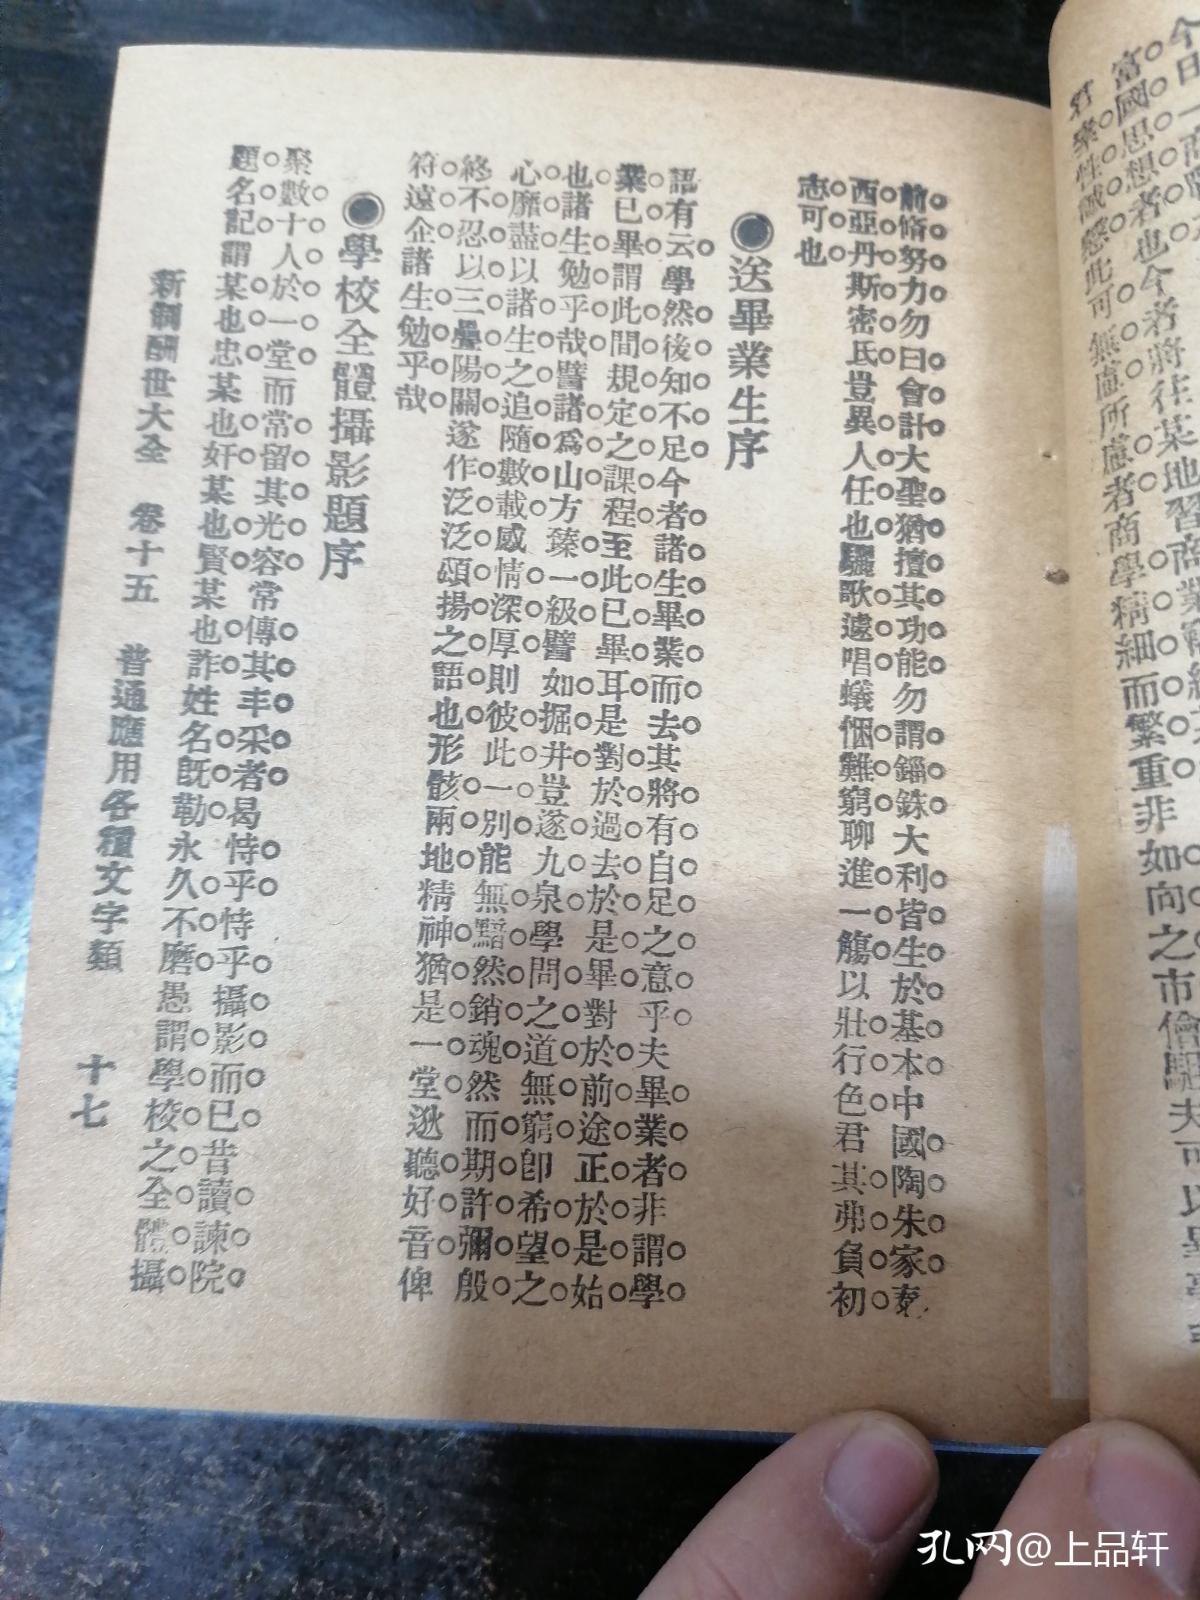 今日一商
富國思想者也今者將往某地習商業
若樂性誠愨此可無慮所慮者商學精細而繁重非如向之市儈駔夫可以
前脩努力勿曰會計大聖猶擅其功能勿謂錙銖大利皆生於基本中國陶朱家
西亞丹斯密氏豈異人任也驪歌遽唱蟻悃難窮聊進一觴以壯行色君其弗負初
志可也
◉送畢業生序
語有云學然後知不足今者諸生畢業而去其將有自足之意乎夫畢業者非謂學
業已畢謂此間規定之課程至此已畢耳是對於過去於是畢對於前途正於是始
也諸生勉乎哉譬諸爲山方臻一級譬如掘井豈遂九泉學問之道無窮卽希望之
心靡盡以諸生之追隨數載感情深厚則彼此一別能無黯然銷魂然而期許彌殷
終不忍以三疊陽關遂作泛泛頌揚之語也形骸兩地精神猶是一堂逖聽好音俾
符遠企諸生勉乎哉
◉學校全體攝影題序
聚數十人於一堂而常留其光容常傳其丰采者曷恃乎恃乎攝影而已昔讀諫院
題名記謂某也忠某也奸某也賢某也詐姓名旣勒永久不磨愚謂學校之全體攝
新編酬世大全 卷十五 普通應用各種文字類 十七
孔网@上品轩